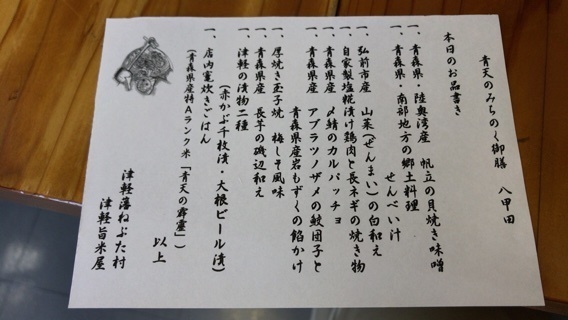 青天のみちのく御膳　八甲田
本日のお品書き
一、青森県・陸奥湾産　帆立の貝焼き味噌
一、青森県・南部地方の郷土料理　せんべい汁
一、弘前市産　山菜（ぜんまい）の白和え
一、自家製塩糀漬け鶏肉と長ネギの焼き物
一、青森県産　〆鯖のカルパッチョ
一、青森県産　アブラツノザメの鮫団子と
青森県産岩もずくの餡かけ
一、厚焼き玉子焼　梅しそ風味
一、青森県産　長芋の磯辺和え
一、津軽の漬物二種
（赤かぶ千枚漬・大根ビール漬）
一、店内竃炊きごはん
（青森県産特Aランク米「青天の霹靂」）
以上
津軽藩ねぷた村
津軽旨米屋